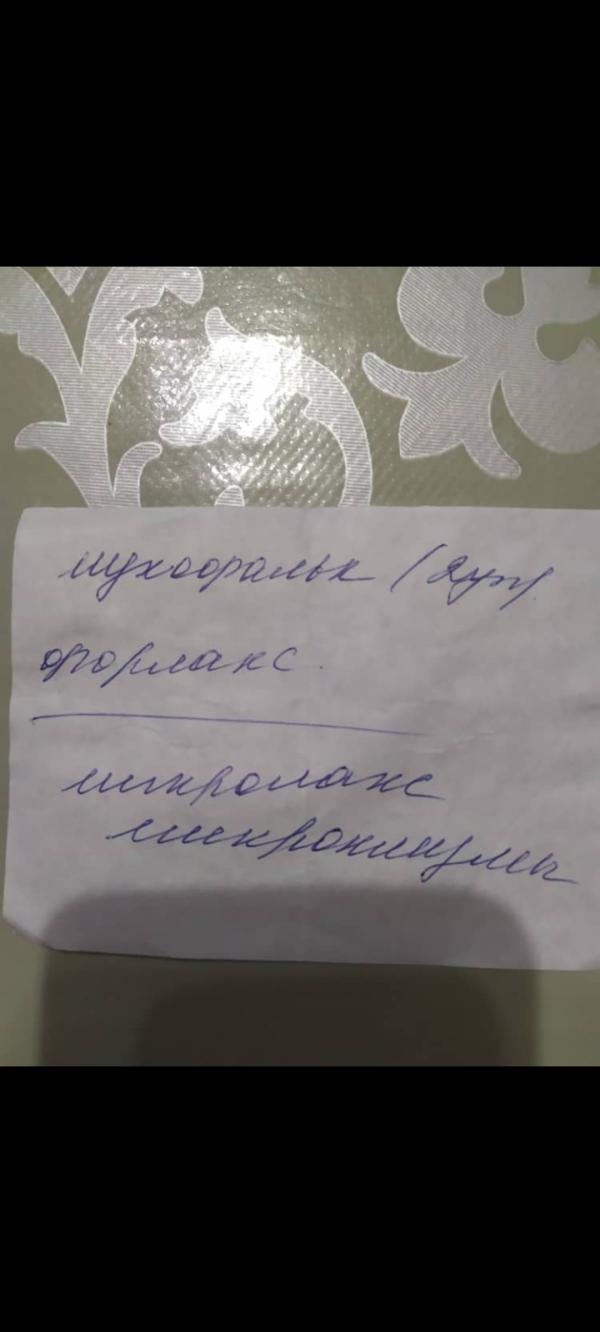 мукофальк (
форлакс.
микролакс
микроклизмы